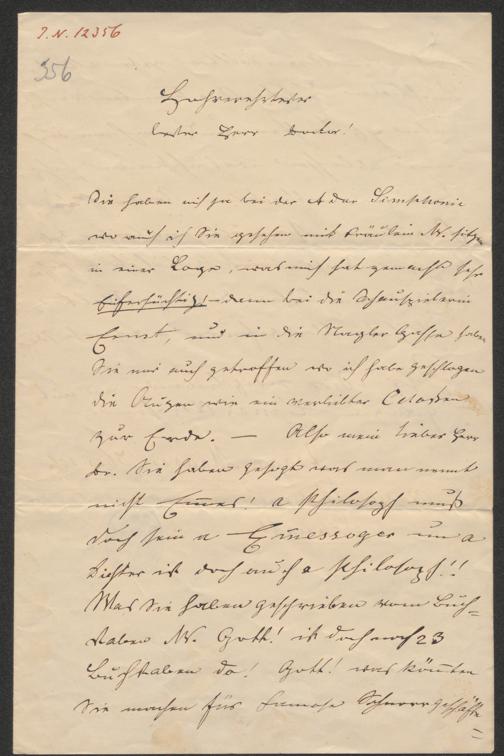 I. N. 12356
356
Hochverehrtester
bester Herr Doctor!
Sie haben mich ja bei der A dur Simphonie
wo auch ich Sie gesehen mit Fräulein M. sitzen
in einer Loge, was mich hat gemacht sehr
Eifersüchtig! – dann bei die Schauspielerin
Ernst, und in die Nagler Gasse haben
Sie mir auch getroffen wo ich habe geschlagen
die Augen wie ein verliebter
zur Erde. — Also mein lieber Herr
Dr. Sie haben gesagt was man nennt
nicht Emes! a Philosoph muß
doch sein a un a
Dichter ist doch auch a Philosoph!!
Was Sie haben geschrieben vom Buch=
staben M. Gott! ist doch noch 23
Buchstaben da! Gott! was könnten
Sie machen für famose Schnorrgeschäfte